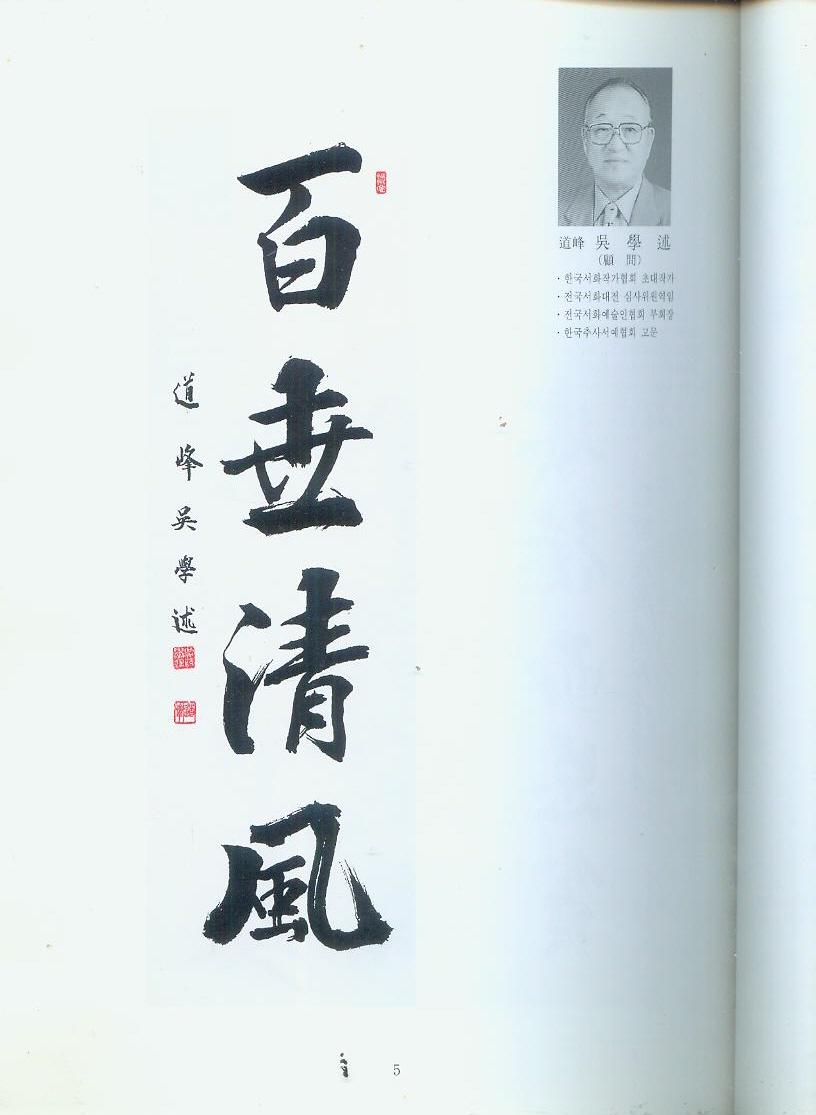 百世清風
道峰吳學述
道峰 吳 學 述
(顧 問)
· 한국서화작가협회 초대작가
· 전국서화대전 심사위원역임
· 전국서화예술인협회 부회장
· 한국추사서예협회 고문
5